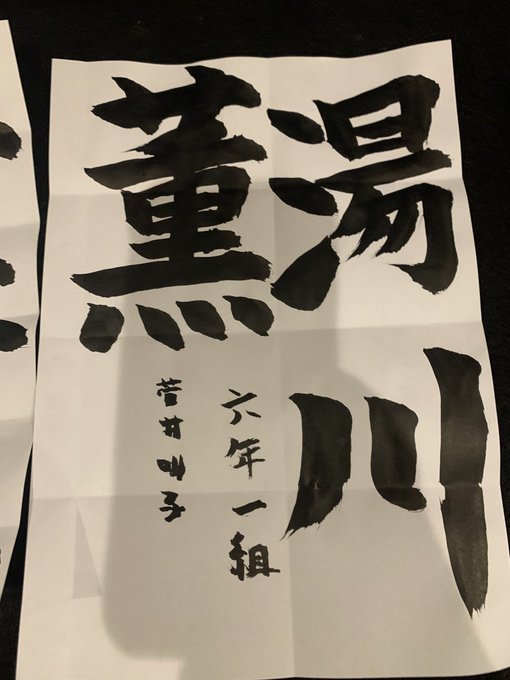 湯川
薫
六年一組
菅井叫子